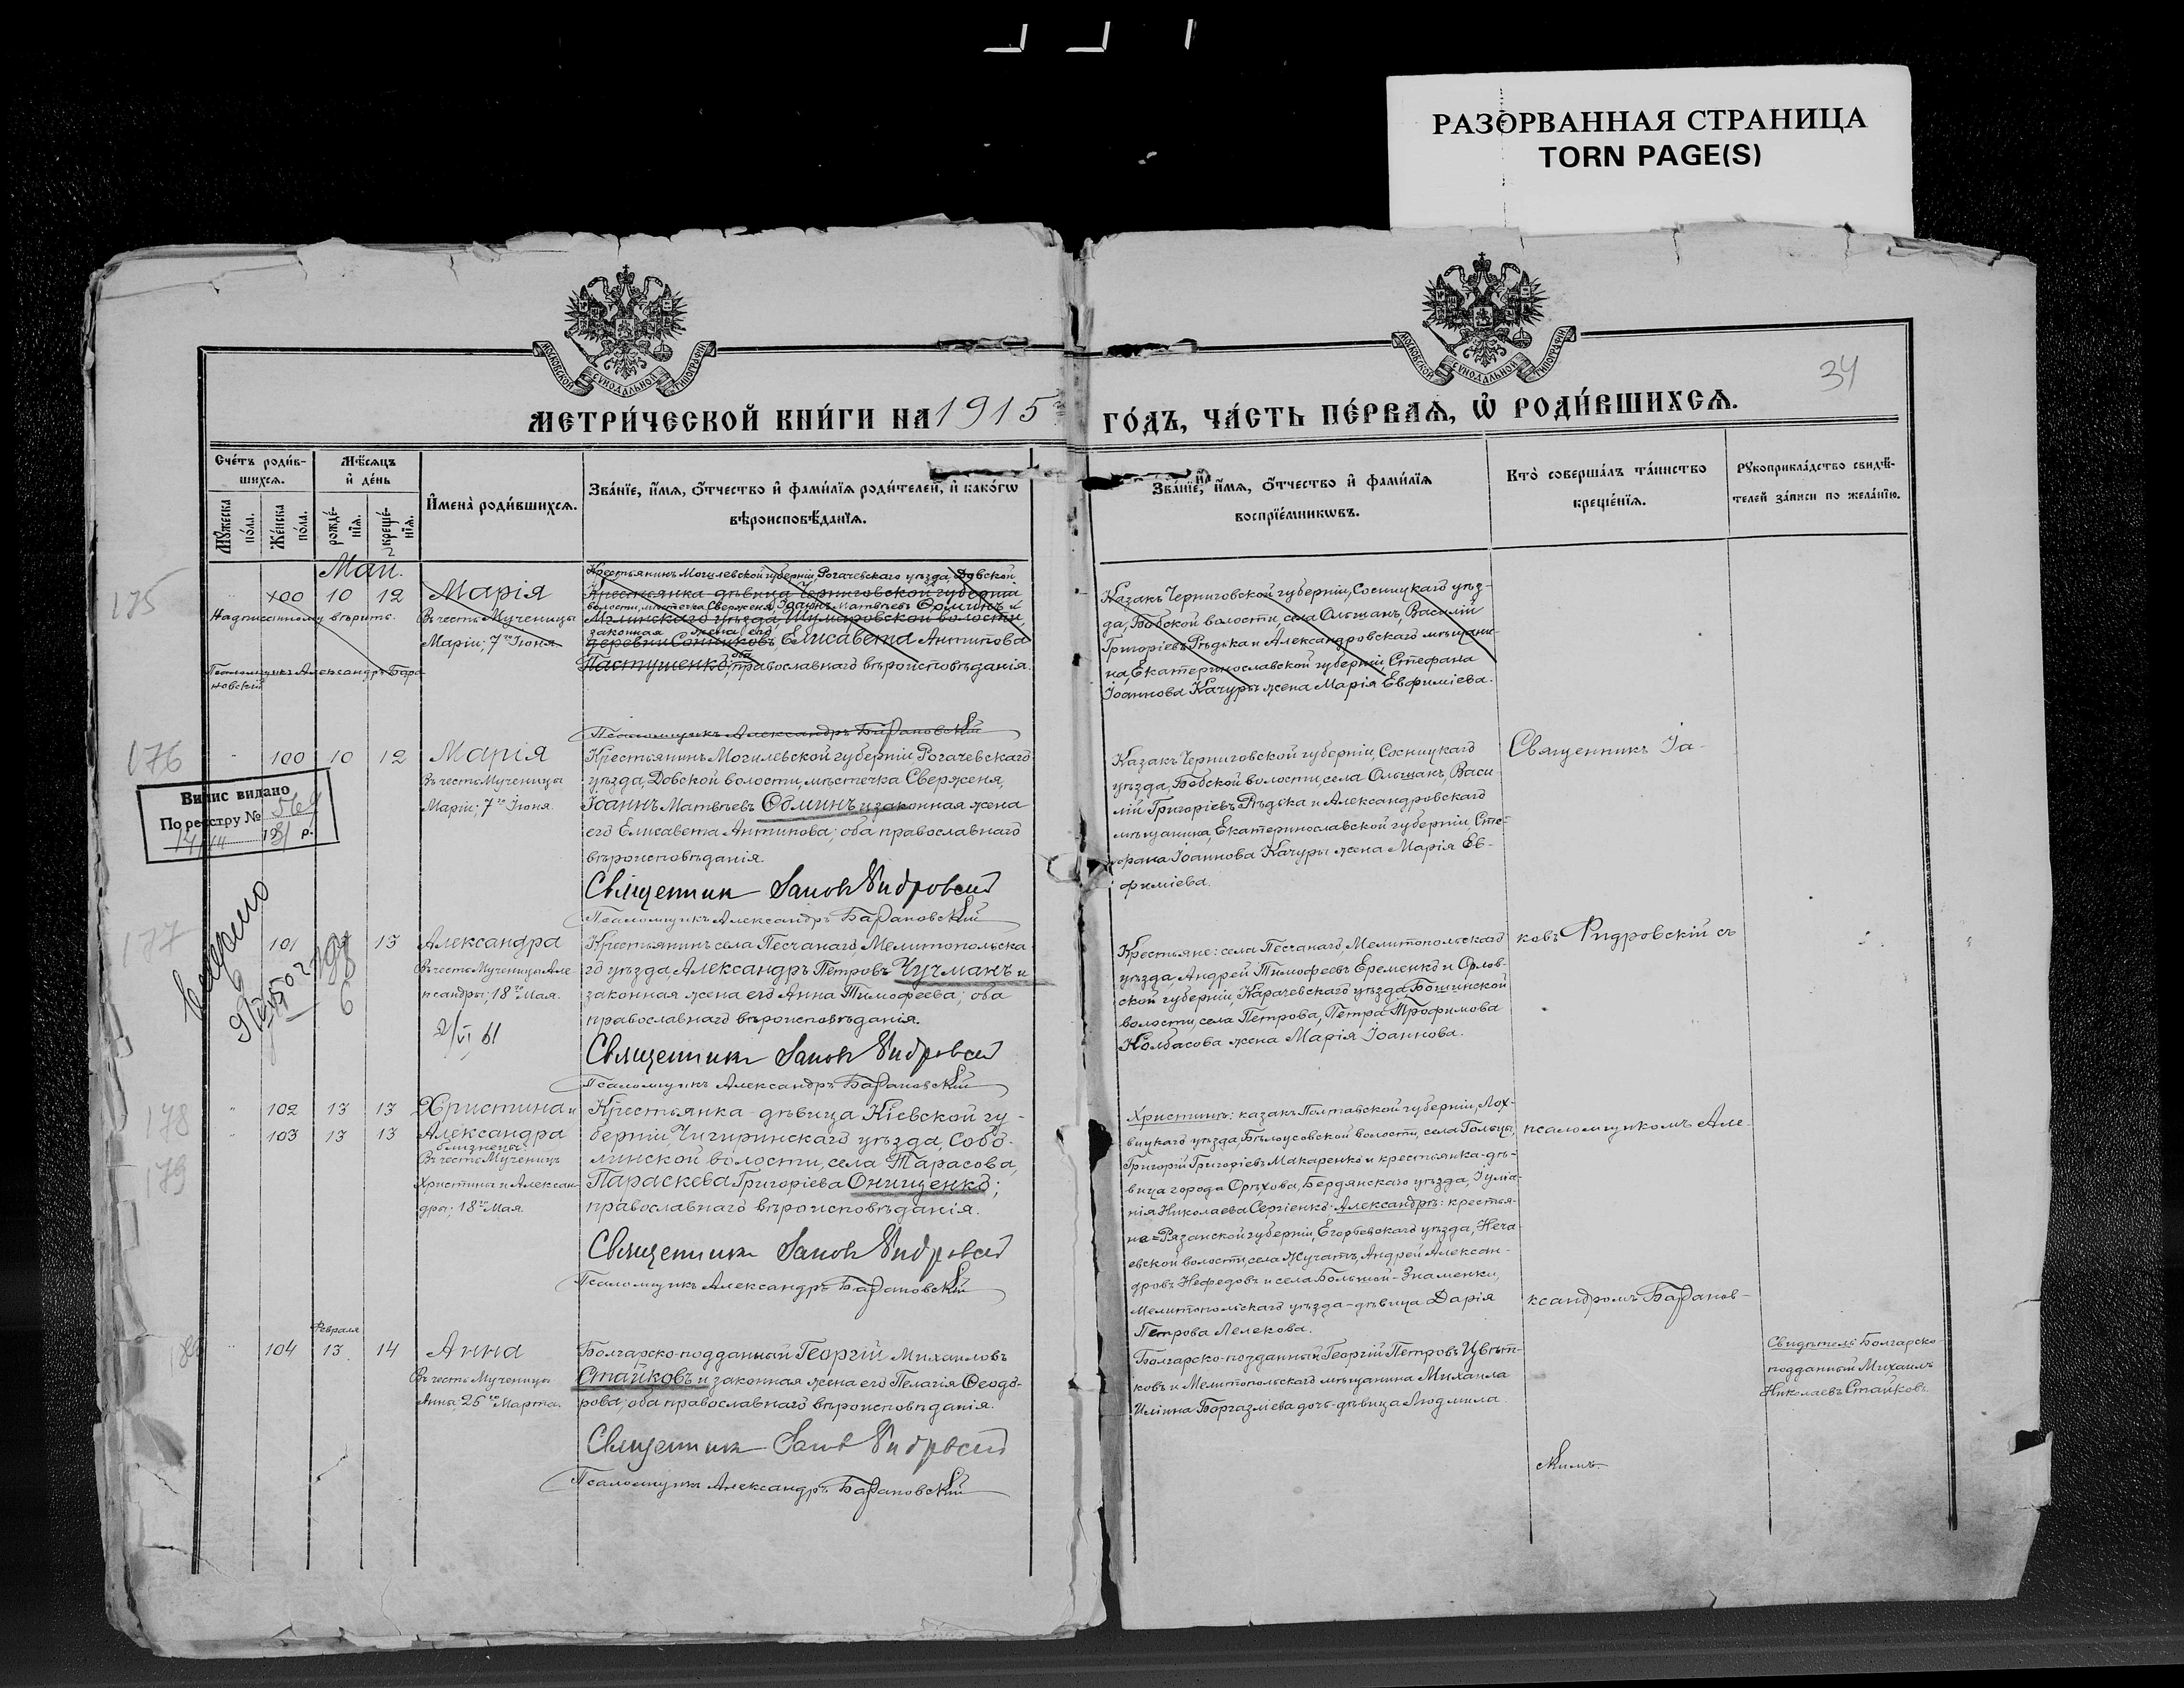 РАЗОРВАННАЯ СТРАНИЦА
TORN PAGE(S)
МОСКОВСКОЙ СѴНОДАЛЬНОЙ ТИПОГРАФІИ
МОСКОВСКОЙ СѴНОДАЛЬНОЙ ТИПОГРАФІИ
34
МЕТРИ́ЧЕСКОЙ КНИ́ГИ НА 1915
ГО́ДЪ, ЧА́СТЬ ПЕ́РВАѦ, Ѡ҆ РОДИ́ВШИХСѦ.
Сче́тъ роди́в-
шихсѧ.
Мѣ́сѧцъ
и҆ де́нь
Мꙋ́жеска по́ла.
Же́нска по́ла.
рожде́-
нїѧ.
креще́-
нїѧ.
И҆мена̀ роди́вшихсѧ.
Зва́нїе, и҆́мѧ, ѻ҆́тчество и҆ фами́лїѧ роди́телей, и҆ како́гѡ
вѣроисповѣ́данїѧ.
Зва́нїе, и҆́мѧ, ѻ҆́тчество и҆ фами́лїѧ
воспрїе́мникѡвъ.
Кто̀ соверша́лъ та́инство
креще́нїѧ.
Рꙋкоприкла́дство свидѣ́-
телей за́писи по жела́нїю.
175
Май.
100 10 12 Марія
Въ честь Мученицы
Маріи; 7го Іюня
Надписанному вѣрить.
Псаломщикъ Александръ Бара
новскій
Крестьянинъ Могилевской губерніи, Рогачевскаго уѣзда, Довской
Крестьянка-дѣвица Черниговской губерніи
волости, мѣстечка Сверженя, Іоаннъ Матвѣевъ Ѳоминъ и
Мглинскаго уѣзда, Шумаровской волости,
законная жена его
деревни Сонниковъ, Елисавета Антипова
оба
Пастушенко, православнаго вѣроисповѣданія.
Псаломщикъ Александръ Барановскій
Казакъ Черниговской губерніи, Сосницкаго уѣз-
да, Бабской волости, села Ольшанъ, Василій
Григоріевъ Рѣдька и Александровскаго мѣщани-
на, Екатеринославской губерніи, Стефана
Іоаннова Качуры жена Марія Евфиміева.
176
100 10 12 Марія
Въ честь Мученицы
Маріи; 7го Іюня.
Випис видано
По реєстру №
19 р.
Крестьянинъ Могилевской губерніи, Рогачевскаго
уѣзда, Довской волости, мѣстечка Сверженя,
Іоаннъ Матвѣевъ Ѳоминъ и законная жена
его Елисавета Антипова; оба православнаго
вѣроисповѣданія.
Священник Иаков Гидровский
Псаломщикъ Александръ Барановскій
Казакъ Черниговской губерніи, Сосницкаго
уѣзда, Бобской волости, села Ольшанъ, Васи
лій Григоріевъ Рѣдька и Александровскаго
мѣщанина, Екатеринославской губерніи, Сте-
фана Іоаннова Качуры жена Марія Ев-
фиміева.
Священникъ Іа-
177
101 13 Александра
Въ честь Мученицы Але
ксандры; 18го Мая.
2/VI 61
Крестьянинъ села Песчанаго, Мелитопольска
го уѣзда, Александръ Петровъ Чучманъ и
законная жена его Анна Тимофеева; оба
православнаго вѣроисповѣданія.
Священник Иаков Гидровский
Псаломщикъ Александръ Барановскій
Крестьяне: села Песчанаго, Мелитопольскаго
уѣзда, Андрей Тимофеевъ Еременко и Орлов-
ской губерніи, Карачевскаго уѣзда, Бошинской
волости, села Петрова, Петра Трофимова
Колбасова жена Марія Іоаннова.
ковъ Гидровскій съ
178
179
102 13 13 Христина и
103 13 13 Александра
близнецы.
Въ честь Мученицъ
Христины и Алексан
дры; 18го Мая.
Крестьянка-дѣвица Кіевской гу-
берніи, Чигиринскаго уѣзда, Собо-
линской волости, села Тарасова,
Параскева Григоріева Онищенко;
православнаго вѣроисповѣданія.
Священник Иаков Гидровский
Псаломщикъ Александръ Барановскій
Христины: казакъ Полтавской губерніи, Лох-
вицкаго уѣзда, Бѣлоусовской волости, села Гольцы,
Григорій Григоріевъ Макаренко и крестьянка-дѣ-
вица города Орѣхова, Бердянскаго уѣзда, Іуліа-
нія Николаева Сергіенко. Александры: крестья-
не = Рязанской губерніи, Егорьевскаго уѣзда, Неча
евской волости, села Жучатъ, Андрей Алексан-
дровъ Нефедовъ и села Большой-Знаменки,
Мелитопольскаго уѣзда-дѣвица Дарія
Петрова Лелекова.
псаломщикомъ Але-
ксандромъ Баранов-
Февраля
104 13 14 Анна
Въ честь Мученицы
Анны; 26го Марта.
Болгарско-подданный Георгій Михаиловъ
Стайковъ и законная жена его Пелагія Ѳеодо-
рова; оба православнаго вѣроисповѣданія.
Священник Иаков Гидровский
Псаломщикъ Александръ Барановскій
Болгарско-подданный Георгій Петровъ Цвѣт-
ковъ и Мелитопольскаго мѣщанина Михаила
Иліина Боргазліева дочь-дѣвица Людмила.
скимъ.
Свидѣтель: Болгарско-
подданный Михаилъ
Николаевъ Стайковъ.